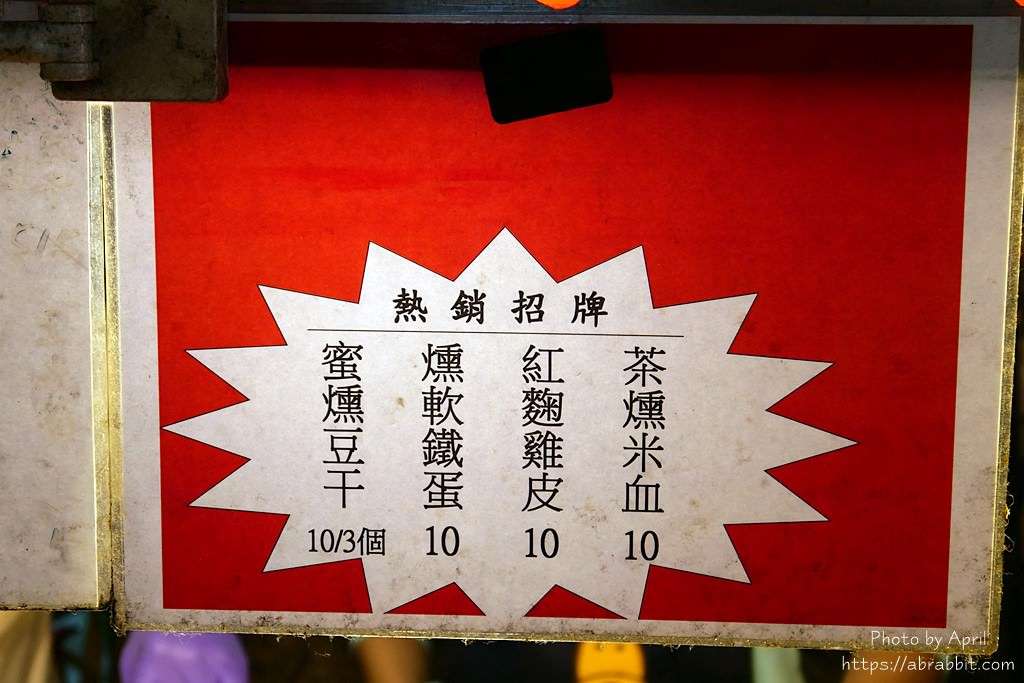 熱銷招牌
茶燻米血
10
紅麴雞皮
10
燻軟鐵蛋
10
蜜燻豆干
10/3個
Photo by April
https://abrabbit.com